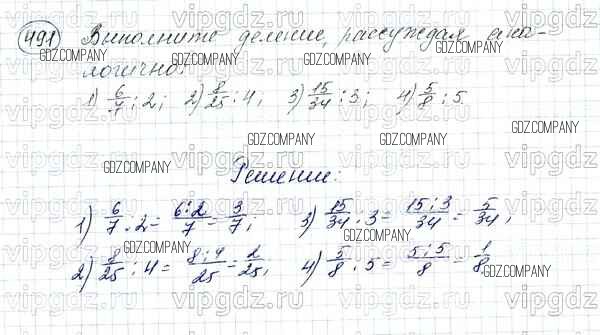 491 Выполните деление, рассуждая ана-
логично:
1) 6/7 : 2; 2) 8/25 : 4, 3) 15/34 : 3; 4) 5/8 : 5.
Решение:
1) 6/7 : 2 = 6:2/7 = 3/7; 3) 15/34 : 3 = 15:3/34 = 5/34,
2) 8/25 : 4 = 8:4/25 = 2/25, 4) 5/8 : 5 = 5:5/8 = 1/8
vipgdz.ru
GDZ.COMPANY